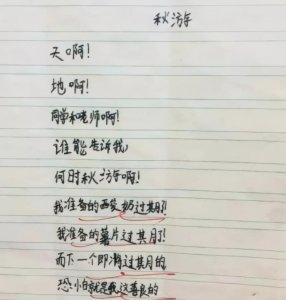 秋游
天啊!
地啊!
同学和老师啊!
谁能告诉我,
何时秋游啊!
我准备的西瓜都过其月了!
我准备的薯片过其月了!
而下一个即将过其月的,
恐怕就是我这善良的